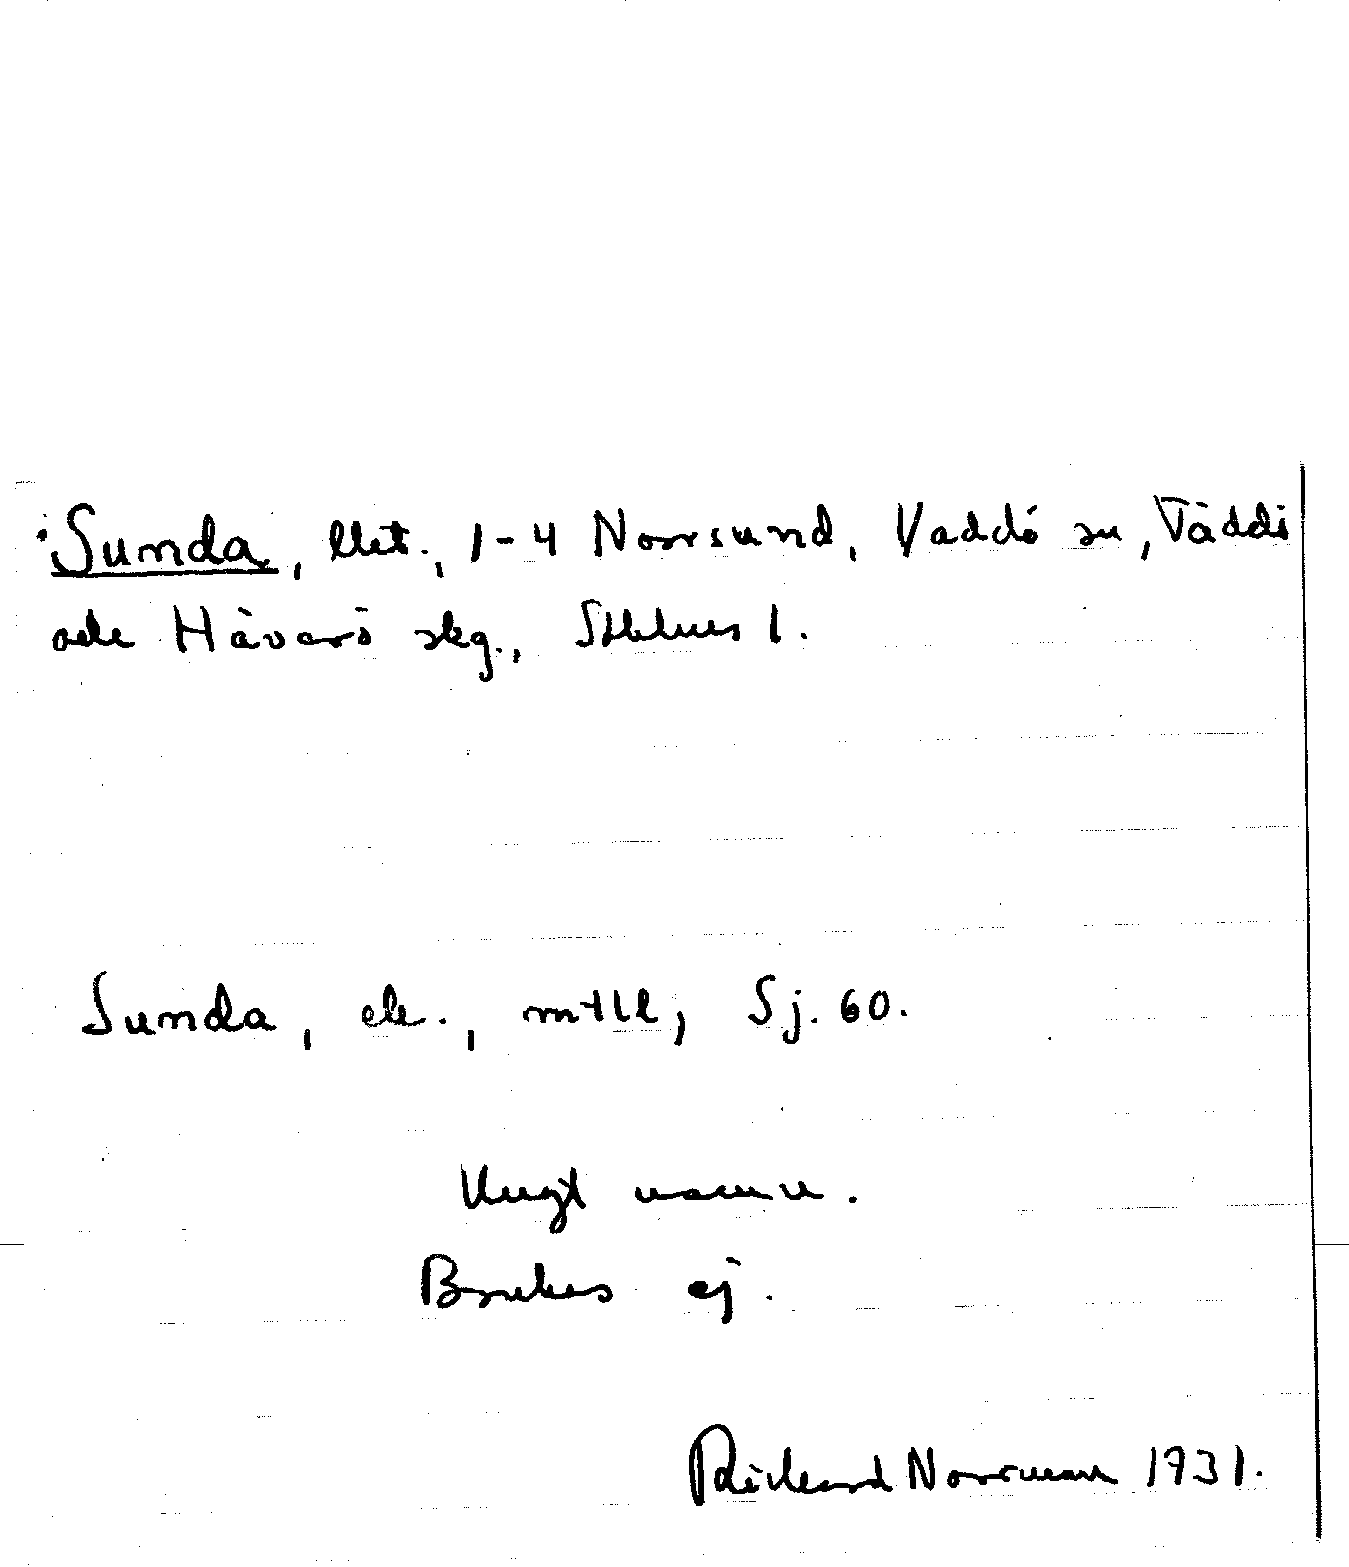 Sunda, lht., 1-4 Norrsund, Väddö sn, Väddö
och Häverö skg., Sthlms l.
Sunda, ek., mtll, Sj. 60.
Ungt namn.
Brukas ej.
Rickard Norrman 1931.